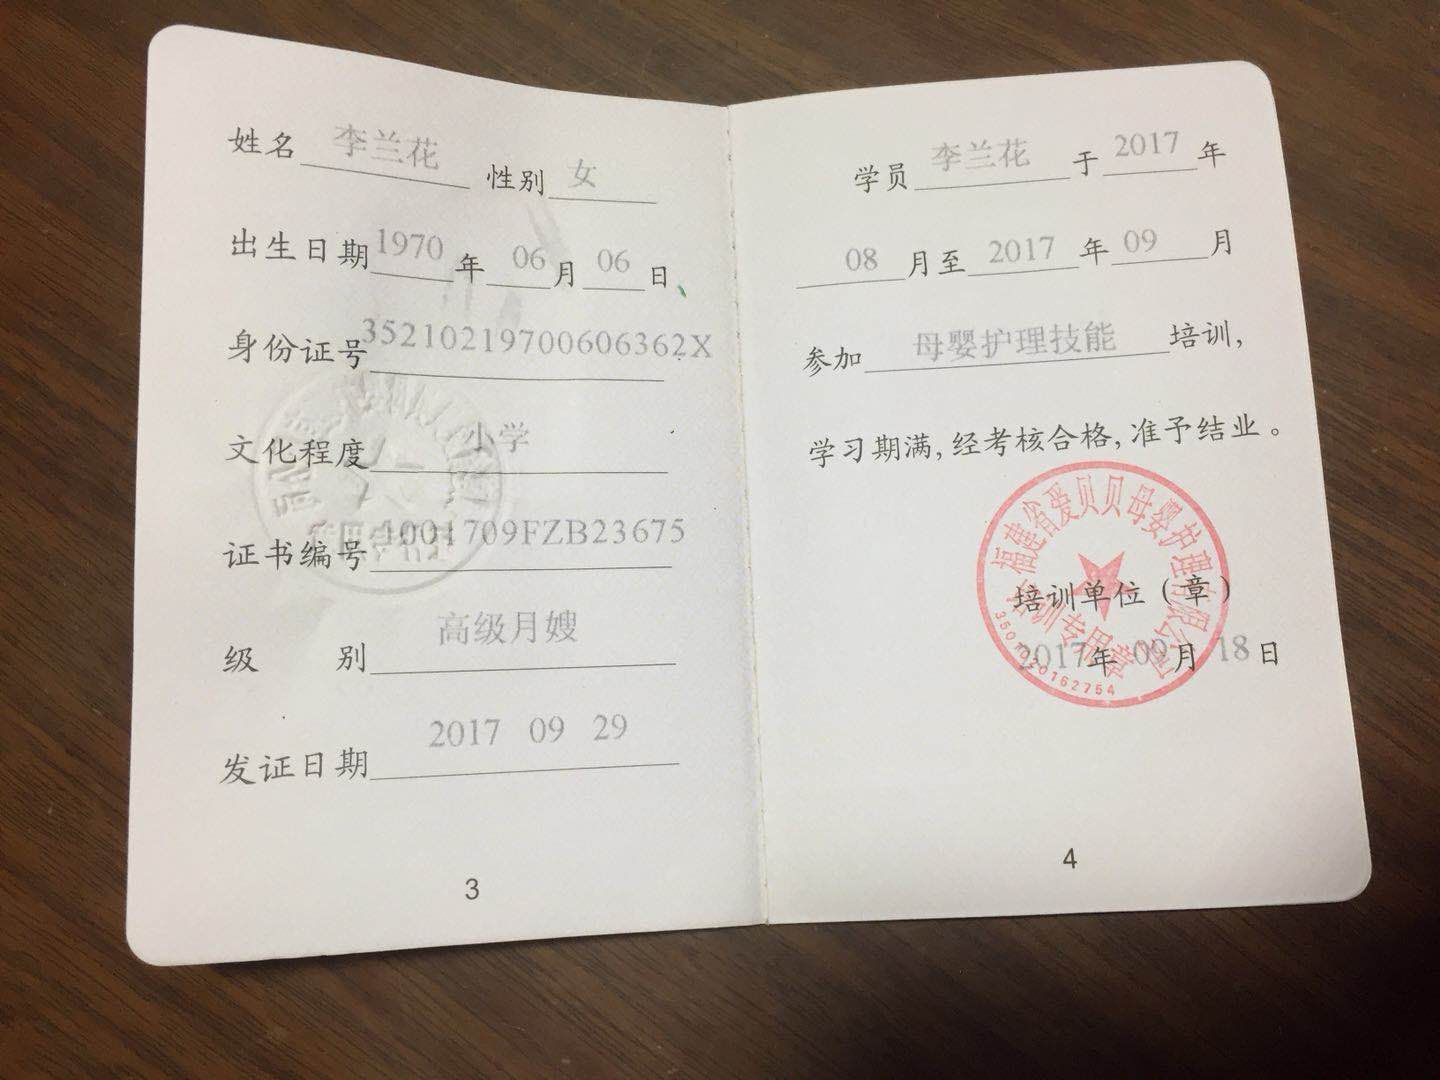 姓名 李兰花 性别 女
出生日期 1970 年 06 月 06 日
身份证号 35210219700606362X
文化程度 小学
证书编号 1001709FZB23675
级 别 高级月嫂
发证日期 2017 09 29
3
学员 李兰花 于 2017 年
08 月至 2017 年 09 月
参加 母婴护理技能 培训,
学习期满,经考核合格,准予结业。
福建省爱贝贝母婴护理有限公司
培训单位(章)
培训专用章
2017年 09 月 18 日
4